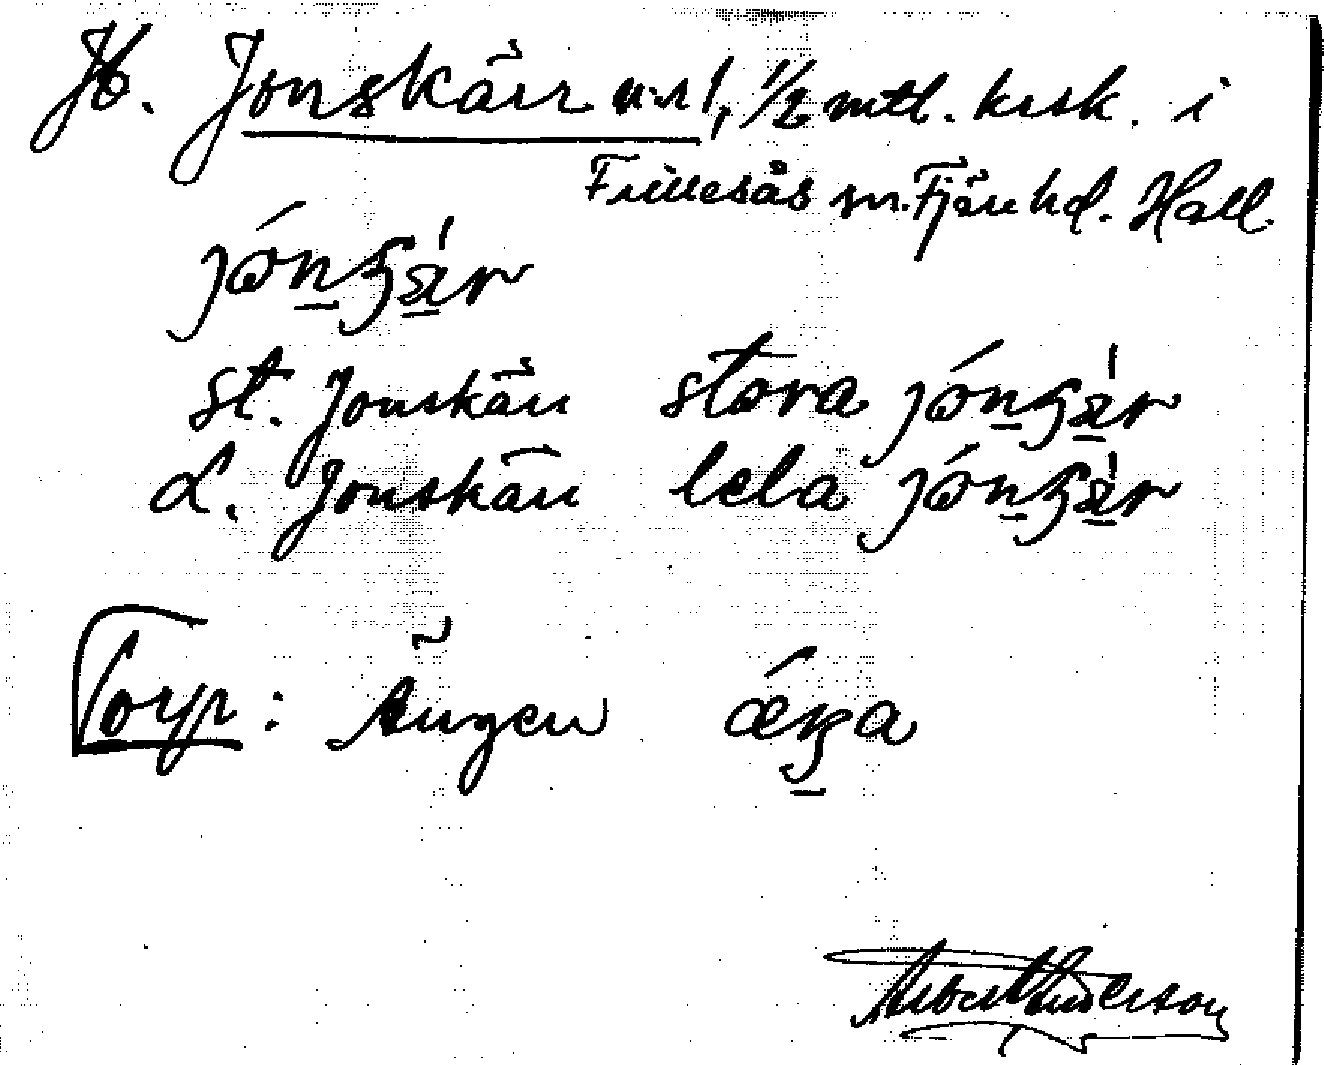 Jb. Jonskärr nr 1, 1/2 mtl. krsk. i
Frillesås sn. Fjäre hd. Hall.
jónʒä́r
st. Jonskärr stora jónʒä́r
L. Jonskärr lela jónʒä́r
Torp: Ängen ǽŋa
Albert Anderson